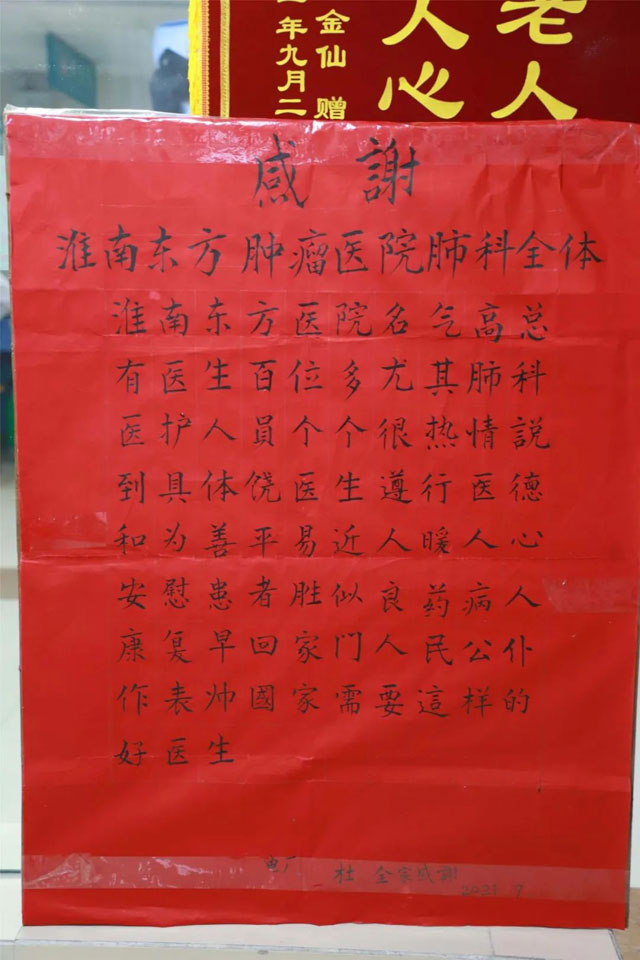 老人
人心
金仙 赠
年九月二
感謝
淮南东方肿瘤医院肺科全体
淮南东方医院名气高总
有医生百位多尤其肺科
医护人員个个很热情説
到具体饶医生遵行医德
和为善平易近人暖人心
安慰患者胜似良药病人
康复早回家门人民公仆
作表帅國家需要這样的
好医生
电厂 杜 全家感謝
2021 9